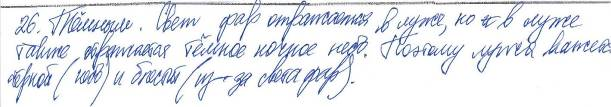 26. Тёмным. Свет фар отражается в луже, но в луже
также отражается тёмное ночное небо. Поэтому лужа кажется
чёрной (небо) и блестит (из-за света фар).